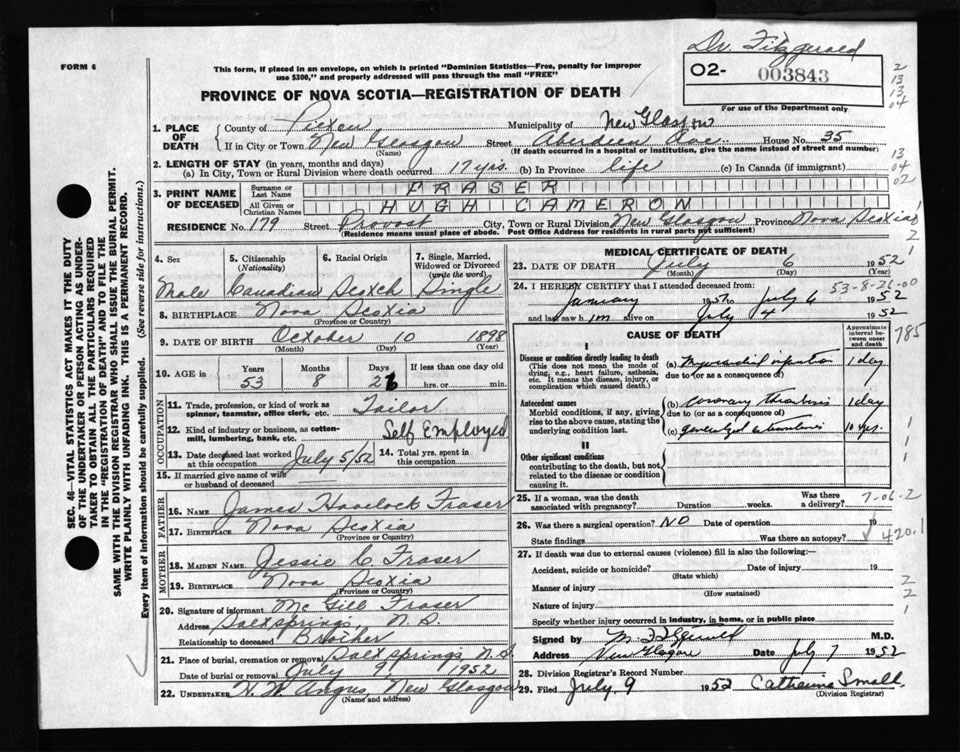 Dr. Fitzgerald
FORM 6
This form, if placed in an envelope, on which is printed "Dominion Statistics—Free, penalty for improper
use $300," and properly addressed will pass through the mail "FREE"
02- 003843
2
13
13
04
PROVINCE OF NOVA SCOTIA—REGISTRATION OF DEATH
For use of the Department only
1. PLACE OF DEATH
County of Pictou Municipality of New Glasgow
If in City or Town New Glasgow Street Aberdeen Ave. House No. 35
(Name) (If death occurred in a hospital or institution, give the name instead of street and number)
2. LENGTH OF STAY (in years, months and days)
(a) In City, Town or Rural Division where death occurred 17 yrs. (b) In Province life (c) In Canada (if immigrant)
13
04
02
3. PRINT NAME OF DECEASED
Surname or Last Name FRASER
All Given or Christian Names HUGH CAMERON
RESIDENCE No. 179 Street Provost City, Town or Rural Division New Glasgow Province Nova Scotia
(Residence means usual place of abode. Post Office Address for residents in rural parts not sufficient)
4. Sex 5. Citizenship (Nationality) 6. Racial Origin 7. Single, Married, Widowed or Divorced (write the word)
Male Canadian Scotch Single
8. BIRTHPLACE Nova Scotia
(Province or Country)
9. DATE OF BIRTH October 10 1898
(Month) (Day) (Year)
10. AGE in Years Months Days If less than one day old
53 8 26 hrs. or min.
OCCUPATION
11. Trade, profession, or kind of work as spinner, teamster, office clerk, etc. Tailor
12. Kind of industry or business, as cotton-mill, lumbering, bank, etc. Self Employed
13. Date deceased last worked at this occupation July 5/52 14. Total yrs. spent in this occupation
15. If married give name of wife or husband of deceased
FATHER
16. NAME James Havelock Fraser
17. BIRTHPLACE Nova Scotia
(Province or Country)
MOTHER
18. MAIDEN NAME Jessie C. Fraser
19. BIRTHPLACE Nova Scotia
(Province or Country)
20. Signature of informant McGill Fraser
Address Saltsprings, N.S.
Relationship to deceased Brother
21. Place of burial, cremation or removal Saltsprings, N.S.
Date of burial or removal July 9, 1952
22. UNDERTAKER H. W. Angus, New Glasgow
(Name and address)
MEDICAL CERTIFICATE OF DEATH
23. DATE OF DEATH July 6 1952
(Month) (Day) (Year)
53-8-26-00
24. I HEREBY CERTIFY that I attended deceased from:
January 1951 to July 6 1952
and last saw him alive on July 4 1952
CAUSE OF DEATH
Approximate interval between onset and death
785
I
Disease or condition directly leading to death
(This does not mean the mode of dying, e.g., heart failure, asthenia, etc. It means the disease, injury, or complication which caused death.)
(a) Myocardial infarction 1 day
due to (or as a consequence of)
Antecedent causes
Morbid conditions, if any, giving rise to the above cause, stating the underlying condition last.
(b) Coronary thrombosis 1 day
due to (or as a consequence of)
(c) Generalized 10 yrs.
II
Other significant conditions
contributing to the death, but not related to the disease or condition causing it.
25. If a woman, was the death associated with pregnancy? Duration weeks. Was there a delivery?
7-06-2
26. Was there a surgical operation? NO Date of operation 19
State findings Was there an autopsy?
420.1
27. If death was due to external causes (violence) fill in also the following:—
Accident, suicide or homicide? Date of injury 19
(State which)
Manner of injury
(How sustained)
Nature of injury
Specify whether injury occurred in industry, in home, or in public place
Signed by M. Fitzgerald M.D.
Address New Glasgow Date July 7 1952
28. Division Registrar's Record Number
29. Filed July 9 1952 Catherine Small
(Division Registrar)
SEC. 46—VITAL STATISTICS ACT MAKES IT THE DUTY
OF THE UNDERTAKER OR PERSON ACTING AS UNDER-
TAKER TO OBTAIN ALL THE PARTICULARS REQUIRED
IN THE "REGISTRATION OF DEATH" AND TO FILE THE
SAME WITH THE DIVISION REGISTRAR WHO SHALL ISSUE THE BURIAL PERMIT.
WRITE PLAINLY WITH UNFADING INK. THIS IS A PERMANENT RECORD.
Every item of information should be carefully supplied. (See reverse side for instructions.)